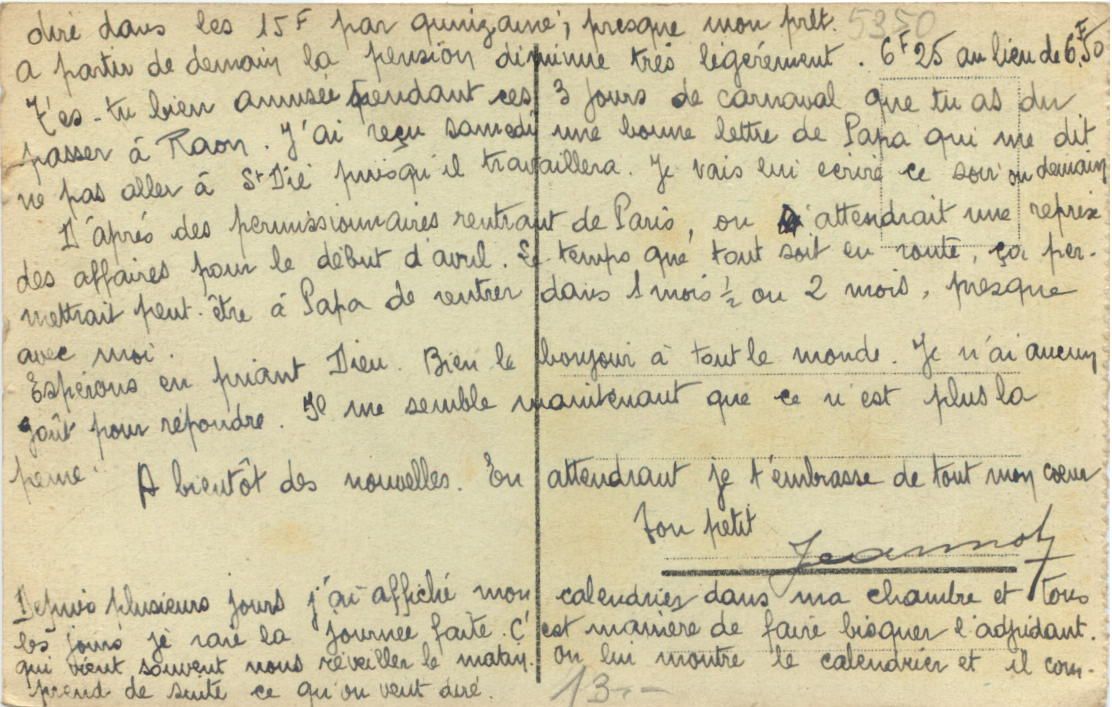 dire dans les 15F par quinzaine, presque mon prêt. 5350
A partir de demain la pension diminue très légèrement. 6F25 au lieu de 6F,50
T'es-tu bien amusée pendant ces 3 jours de carnaval que tu as du
passer à Raon. J'ai reçu samedi une bonne lettre de Papa qui me dit
ne pas aller à St Dié puisqu'il travaillera. Je vais lui ecrire ce soir ou demain
D'après des permissionnaires rentrant de Paris, on attendrait une reprise
des affaires pour le début d'avril. Le temps que tout soit en route, ça per-
mettrait peut-être à Papa de rentrer dans 1 mois ½ ou 2 mois, presque
avec moi.
Espérons en priant Dieu. Bien le bonjour à tout le monde. Je n'ai aucun
goût pour répondre. Il me semble maintenant que ce n'est plus la
peine. A bientôt des nouvelles. En attendant je t'embrasse de tout mon coeur
Ton petit
Jeannot
Depuis plusieurs jours j'ai affiché mon calendrier dans ma chambre et tous
les jours je raie la journée faite. C'est manière de faire bisquer l'adjudant.
qui vient souvent nous réveiller le matin. On lui montre le calendrier et il com-
prend de suite ce qu'on veut dire. 13.--